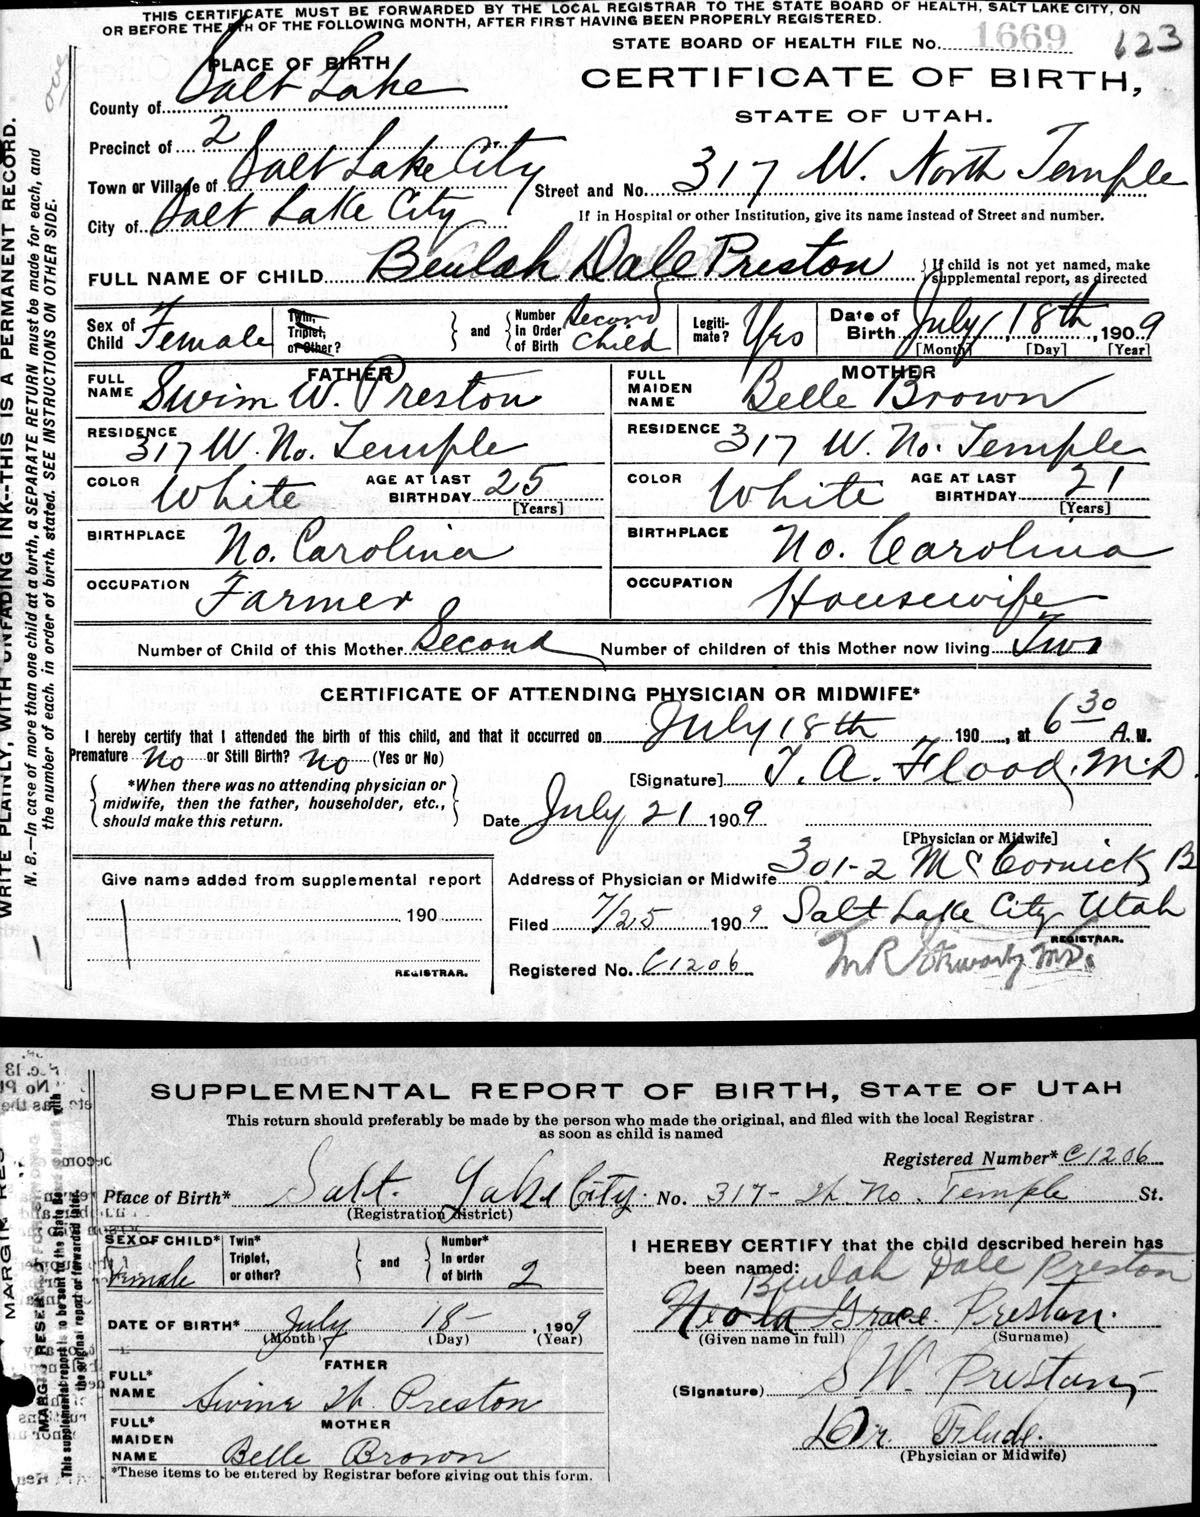 THIS CERTIFICATE MUST BE FORWARDED BY THE LOCAL REGISTRAR TO THE STATE BOARD OF HEALTH, SALT LAKE CITY, ON
OR BEFORE THE 5TH OF THE FOLLOWING MONTH, AFTER FIRST HAVING BEEN PROPERLY REGISTERED.
STATE BOARD OF HEALTH FILE No. 1669 123
PLACE OF BIRTH
CERTIFICATE OF BIRTH,
STATE OF UTAH.
County of Salt Lake
Precinct of 2
Town or Village of Salt Lake City
Street and No. 317 W. North Temple
City of Salt Lake City
If in Hospital or other Institution, give its name instead of Street and number.
FULL NAME OF CHILD Beulah Dale Preston
If child is not yet named, make supplemental report, as directed
Sex of Child Female
Twin, Triplet, or Other? and Number In Order of Birth Second Child
Legitimate? Yes
Date of Birth July 18th, 1909
[Month] [Day] [Year]
FATHER
FULL NAME Swim W. Preston
RESIDENCE 317 W. No. Temple
COLOR White AGE AT LAST BIRTHDAY 25 [Years]
BIRTHPLACE No. Carolina
OCCUPATION Farmer
MOTHER
FULL MAIDEN NAME Belle Brown
RESIDENCE 317 W. No. Temple
COLOR White AGE AT LAST BIRTHDAY 21 [Years]
BIRTHPLACE No. Carolina
OCCUPATION Housewife
Number of Child of this Mother Second Number of children of this Mother now living Two
CERTIFICATE OF ATTENDING PHYSICIAN OR MIDWIFE*
I hereby certify that I attended the birth of this child, and that it occurred on July 18th, 190, at 6 30 A. M.
Premature No or Still Birth? No (Yes or No)
*When there was no attending physician or midwife, then the father, householder, etc., should make this return.
[Signature] T. A. Flood, M.D.
Date July 21 1909
[Physician or Midwife]
Give name added from supplemental report
190
REGISTRAR.
Address of Physician or Midwife 301-2 McCornick B
Salt Lake City Utah
Filed 7/25 1909
REGISTRAR.
Registered No. C1206
WRITE PLAINLY, WITH UNFADING INK--THIS IS A PERMANENT RECORD.
N. B.—In case of more than one child at a birth, a SEPARATE RETURN must be made for each, and
the number of each, in order of birth, stated. SEE INSTRUCTIONS ON OTHER SIDE.
SUPPLEMENTAL REPORT OF BIRTH, STATE OF UTAH
This return should preferably be made by the person who made the original, and filed with the local Registrar
as soon as child is named
Registered Number* C1206
Place of Birth* Salt Lake City No. 317- W. No. Temple St.
(Registration district)
SEX OF CHILD* Female
Twin* Triplet, or other? and Number* In order of birth 2
DATE OF BIRTH* July 18-, 1909
(Month) (Day) (Year)
FATHER
FULL* NAME Swinn W. Preston
MOTHER
FULL* MAIDEN NAME Belle Brown
*These items to be entered by Registrar before giving out this form.
I HEREBY CERTIFY that the child described herein has
been named:
Beulah Dale Preston
Neola Grace Preston.
(Given name in full) (Surname)
(Signature) S W. Preston
Dr. Flude.
(Physician or Midwife)
This supplemental report is to be sent to the State Board of Health with
the original report or forwarded later.